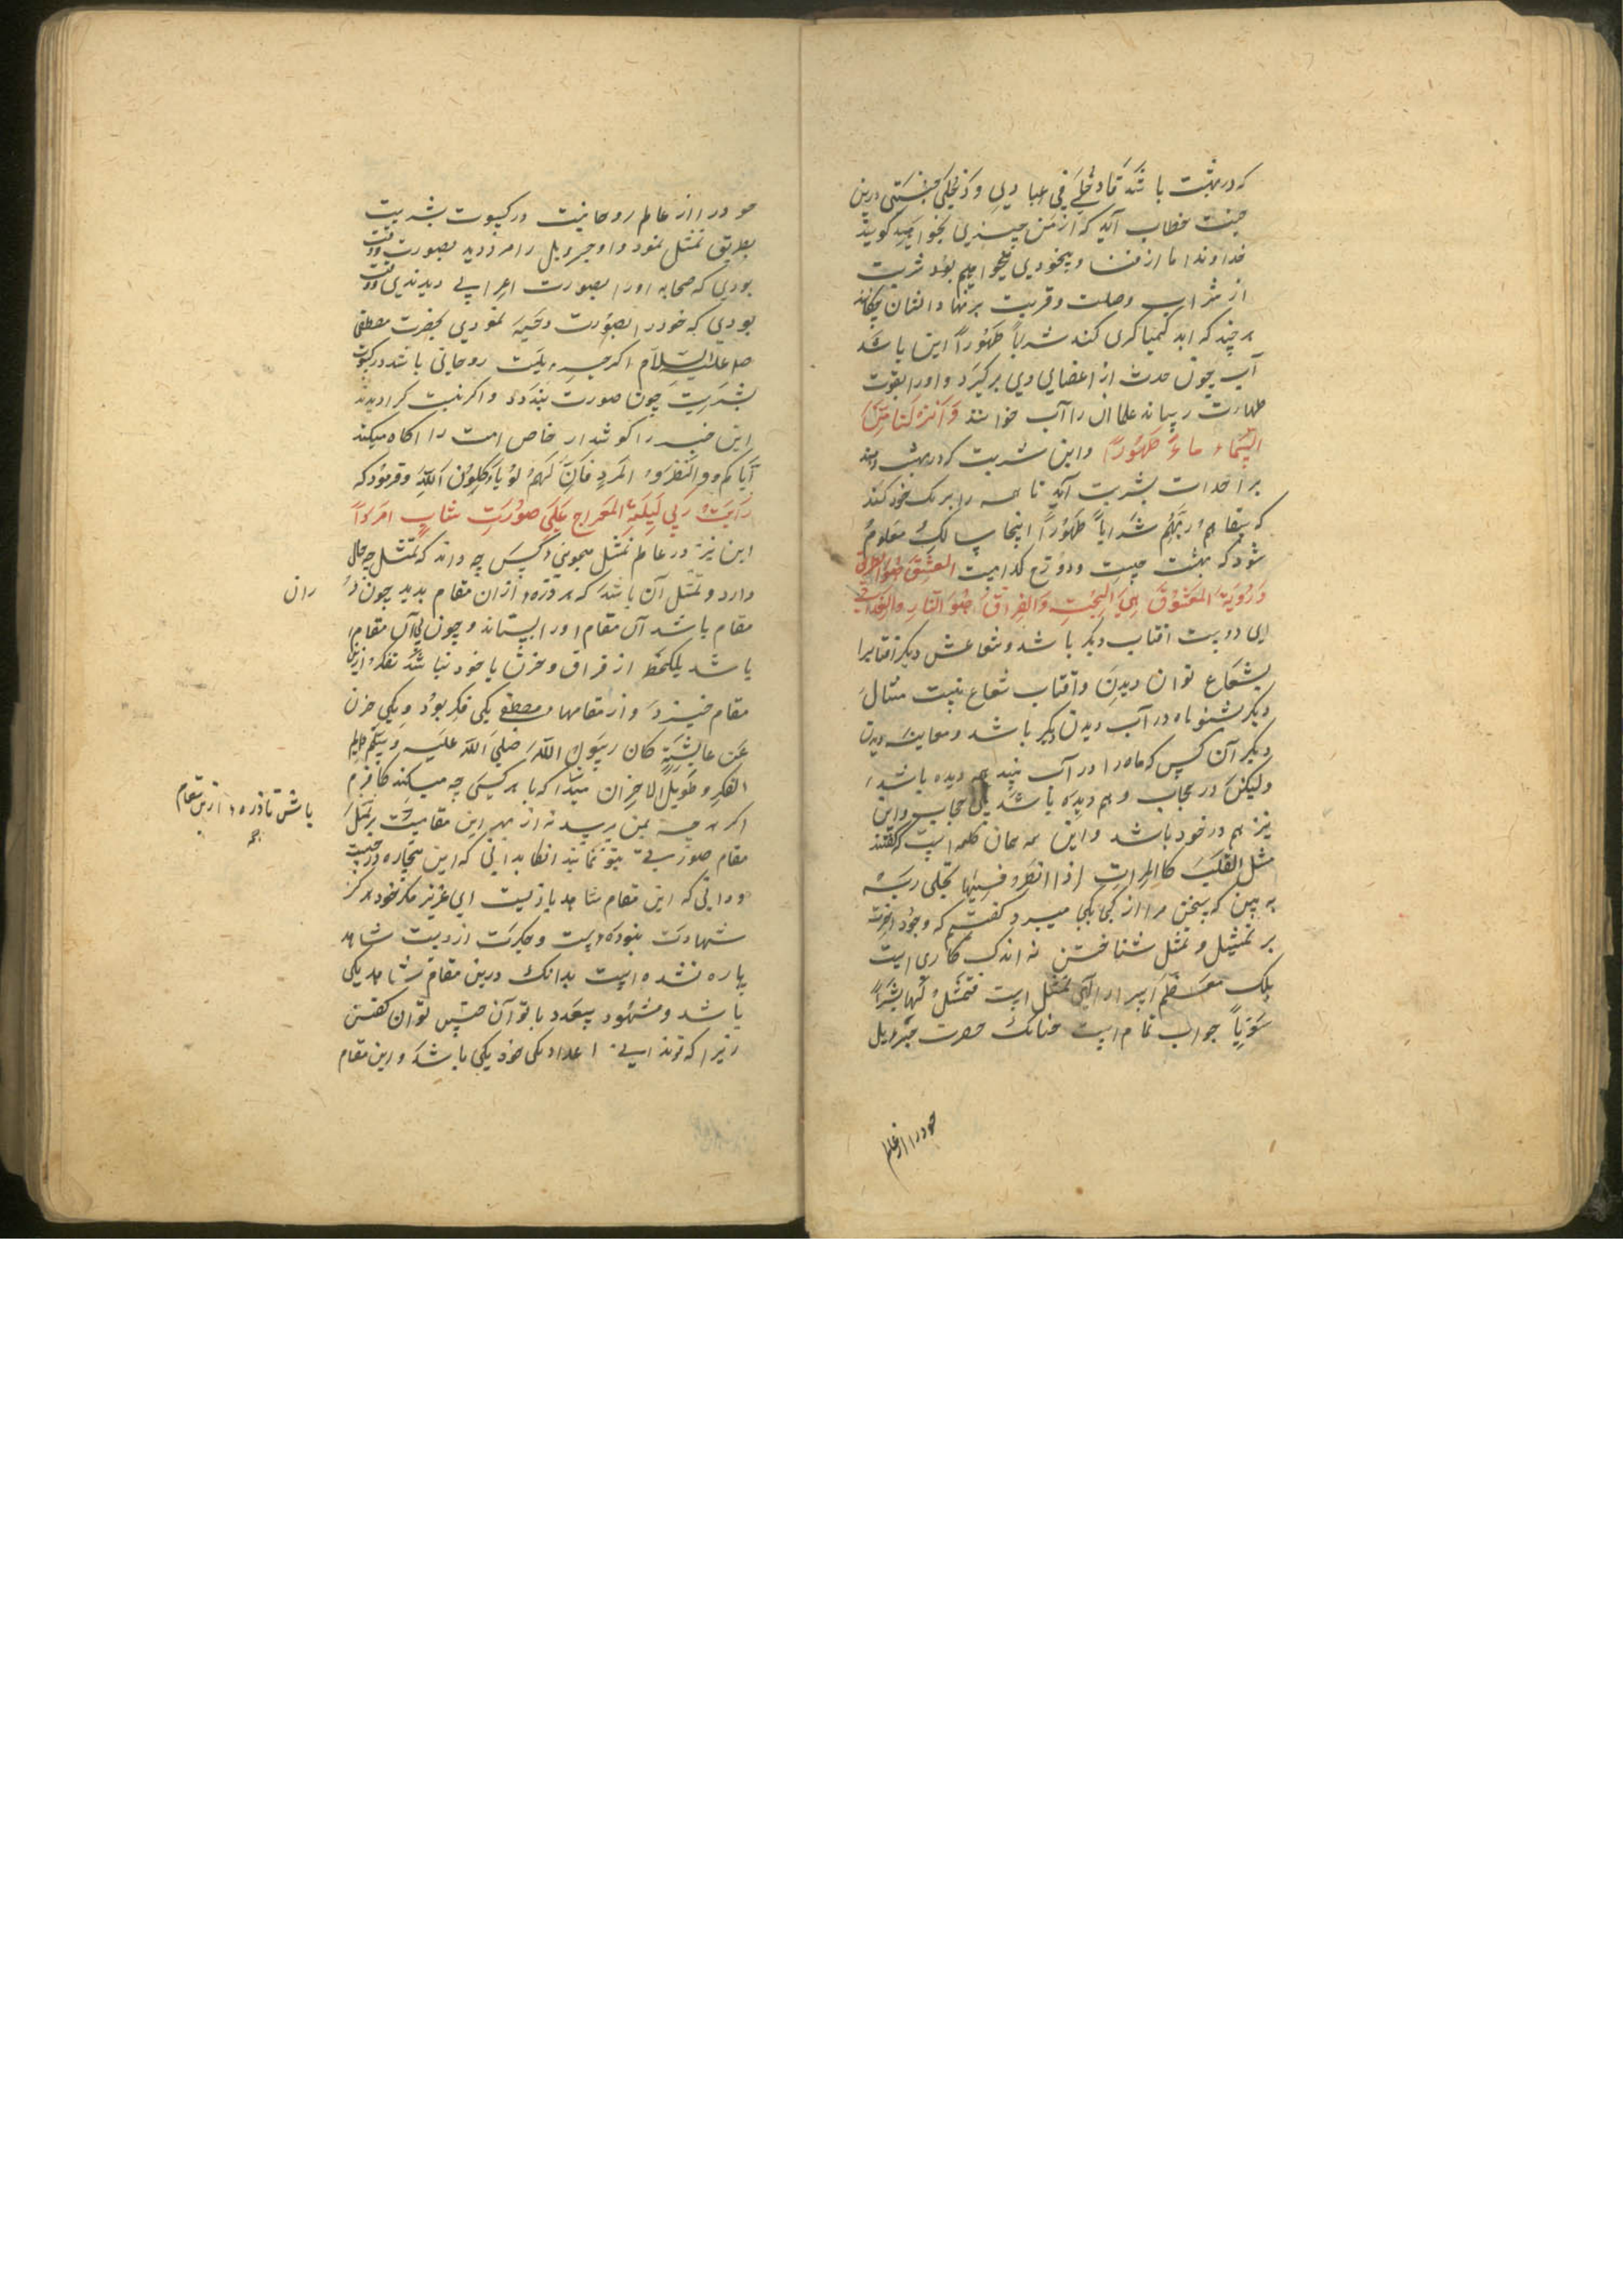 که در بهشت باشد فادخلی فی عبادی وادخلی جنتی درین
جنت خطاب آید که از من چیزی بخواهید گویند
خداوندا ما از فنا و بیخودی میخواهیم بود شربت
از شراب وصلت و قربت بر نهاد ایشان چکاند
هر چند که آید کیمیاگری کند شراباً طهوراً این باشد
آب چون حدث از اعضای وی برگیرد و اورا بقوت
طهارت رساند علما آن را آب خوانند وَاَنزَلنا مِنَ
السَّماءِ ماءً طَهُوراً و این شربت که در بهشت دهند
بر احداث بشریت آید تا همه را برنگ خود کند
که سَقاهُم رَبُّهُم شَراباً طَهُوراً اینجا سالک معلوم
شود که بهشت چیست و دوزخ کدامست العشق هو الطریق
وَرُؤیَةُ المَعشُوقِ هِیَ الجَنَّةِ وَالفِراقُ هُوَ النّارِ والعَذاب
ای دوست آفتاب دیگر باشد و شعاعش دیگر آفتابرا
بشعاع توان دیدن و آفتاب شعاع نیست مثال
دیگر بشنو ماه در آب دیدن دیگر باشد و معاینه دیدن
دیگر آن کس که ماه را در آب بیند هم دیده باشد
ولیکن در حجاب و هم دیده باشد بی حجاب و این
نیز هم در خود باشد و این همه همان کلمه است که گفتند
مثل القلب کالمرات اذا انظر فیها تجلی ربه
به بین که سخن مرا از کجا بکجا میبرد گفتم که وجود آخرت
بر تمثیل و تمثل شناختن نه اندک کاری است
بلک معظم اسرار الهی تمثل است فتمثل لها بشراً
سویاً جواب تمام است چنانک حضرت جبرویل
خود را از عالم
خود را از عالم روحانیت در کسوت بشریت
بطریق تمثل نمود و او جبرویل را مرد دید بصورت و وقت
بودی که صحابه اورا بصورت اعرابی دیدندی و وقت
بودی که خود را بصورت دحیه نمودی بحضرت مصطفی
صلم علیه السلام اگر جبرویلست روحانی باشد در کسوت
بشریت چون صورت بندد و اگر نیست کرا دیدند
این خبر را گوش دار خاص امت را آگاه میکند
اِیّاکُم وَالنَّظَرُ المُردِ فَاِنَّ لَهُم لَوناً کَلَونِ اللّهِ و فرمود که
رَاَیتُ رَبّی لَیلَةِ المِعراجِ عَلی صُورَتِ شابٍ اَمرَداً
این نیز در عالم تمثل میجوینی و کس چه داند که تمثل چه حال
دارد و تمثل آن باشد که هر ذره و ازان مقام بدید چون در
ران
مقام باشد آن مقام اورا بستاند و چون بی آن مقام
باشد یکلحظه از فراق و حزن با خود نباشد تفکر ازین
مقام خیزد و از مقامها و مصطفی یکی فکر بود و یکی حزن
عن عایشة کان رسول الله صلی الله علیه وسلم دایم
الفکر و طویل الاحزان میدا که با هر کسی چه میکند کافرم
اگر هر چه بمن رسید نه از بهر این مقامیست بر تمثل
باش تا ذره و ازین مقام
مقام صورتی بتو نمایند آنگاه بدانی که این بیچاره در چیست
و دانی که این مقام شاهد بازیست ای عزیز مگر خود هرگز
شهادت نبوده است و جگرت از دست شاهد
پاره نشده است بدانک درین مقام شاهد یکی
باشد و مشهود بیعدد با تو آن چنین توان گفتن
زیرا که تو ندانی اعداد یکی خود یکی باشد و این مقام